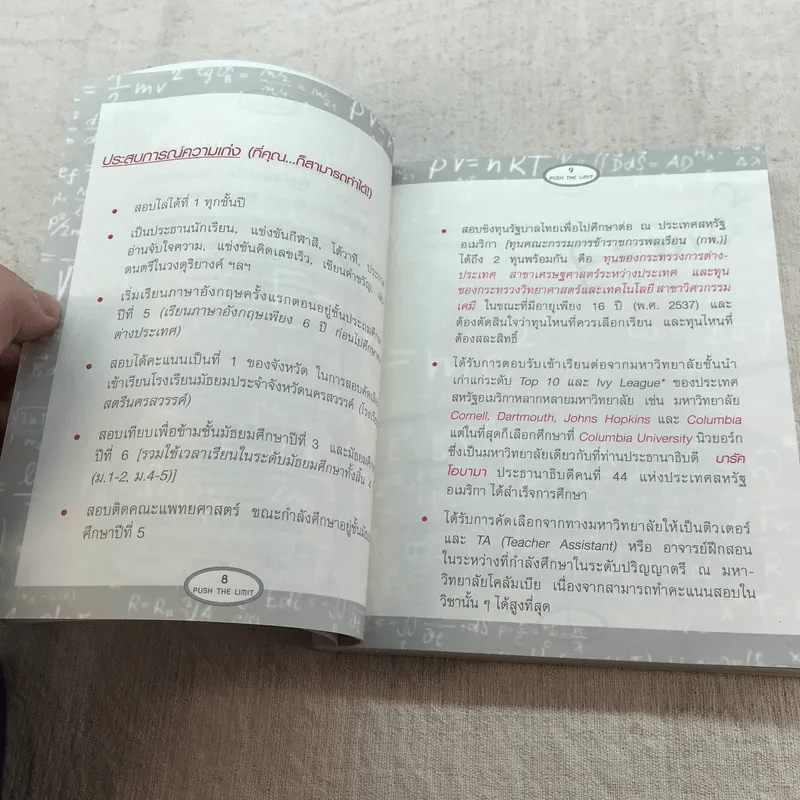 ประสบการณ์ความเก่ง (ที่คุณ...ก็สามารถทำได้!)
• สอบไล่ได้ที่ 1 ทุกชั้นปี
• เป็นประธานนักเรียน, แข่งขันกีฬาสี, โต้วาที,
อ่านจับใจความ, แข่งขันคิดเลขเร็ว, เขียนคำขวัญ,
ดนตรีในวงดุริยางค์ ฯลฯ
• เริ่มเรียนภาษาอังกฤษครั้งแรกตอนอยู่ชั้นประถมศึกษา
ปีที่ 5 (เรียนภาษาอังกฤษเพียง 6 ปี ก่อนไปศึกษา
ต่างประเทศ)
• สอบได้คะแนนเป็นที่ 1 ของจังหวัด ในการสอบคัดเลือก
เข้าเรียนโรงเรียนมัธยมประจำจังหวัดนครสวรรค์
สตรีนครสวรรค์)
• สอบเทียบเพื่อข้ามชั้นมัธยมศึกษาปีที่ 3 และมัธยมศึกษา
ปีที่ 6 [รวมใช้เวลาเรียนในระดับมัธยมศึกษาทั้งสิ้น 4
(ม.1-2, ม.4-5)]
• สอบติดคณะแพทยศาสตร์ ขณะกำลังศึกษาอยู่ชั้นมัธยม
ศึกษาปีที่ 5
8
PUSH THE LIMIT
pv = nKT
9
PUSH THE LIMIT
• สอบชิงทุนรัฐบาลไทยเพื่อไปศึกษาต่อ ณ ประเทศสหรัฐ
อเมริกา [ทุนคณะกรรมการข้าราชการพลเรือน (กพ.)]
ได้ถึง 2 ทุนพร้อมกัน คือ ทุนของกระทรวงการต่าง-
ประเทศ สาขาเศรษฐศาสตร์ระหว่างประเทศ และทุน
ของกระทรวงวิทยาศาสตร์และเทคโนโลยี สาขาวิศวกรรม
เคมี ในขณะที่มีอายุเพียง 16 ปี (พ.ศ. 2537) และ
ต้องตัดสินใจว่าทุนไหนที่ควรเลือกเรียน และทุนไหนที่
ต้องสละสิทธิ์
• ได้รับการตอบรับเข้าเรียนต่อจากมหาวิทยาลัยชั้นนำ
เก่าแก่ระดับ Top 10 และ Ivy League* ของประเทศ
สหรัฐอเมริกาหลากหลายมหาวิทยาลัย เช่น มหาวิทยาลัย
Cornell, Dartmouth, Johns Hopkins และ Columbia
แต่ในที่สุดก็เลือกศึกษาที่ Columbia University นิวยอร์ก
ซึ่งเป็นมหาวิทยาลัยเดียวกับที่ท่านประธานาธิบดี บารัค
โอบามา ประธานาธิบดีคนที่ 44 แห่งประเทศสหรัฐ
อเมริกา ได้สำเร็จการศึกษา
• ได้รับการคัดเลือกจากทางมหาวิทยาลัยให้เป็นติวเตอร์
และ TA (Teacher Assistant) หรือ อาจารย์ฝึกสอน
ในระหว่างที่กำลังศึกษาในระดับปริญญาตรี ณ มหา-
วิทยาลัยโคลัมเบีย เนื่องจากสามารถทำคะแนนสอบใน
วิชานั้น ๆ ได้สูงที่สุด